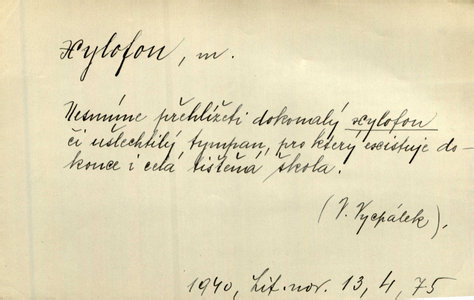 xylofon, m.
Nesmíme přehlížeti dokonalý xylofon
či ušlechtilý tympan, pro který existuje do-
konce i celá tištěná škola.
(V. Vycpálek).
1940, Lit. nov. 13, 4, 75